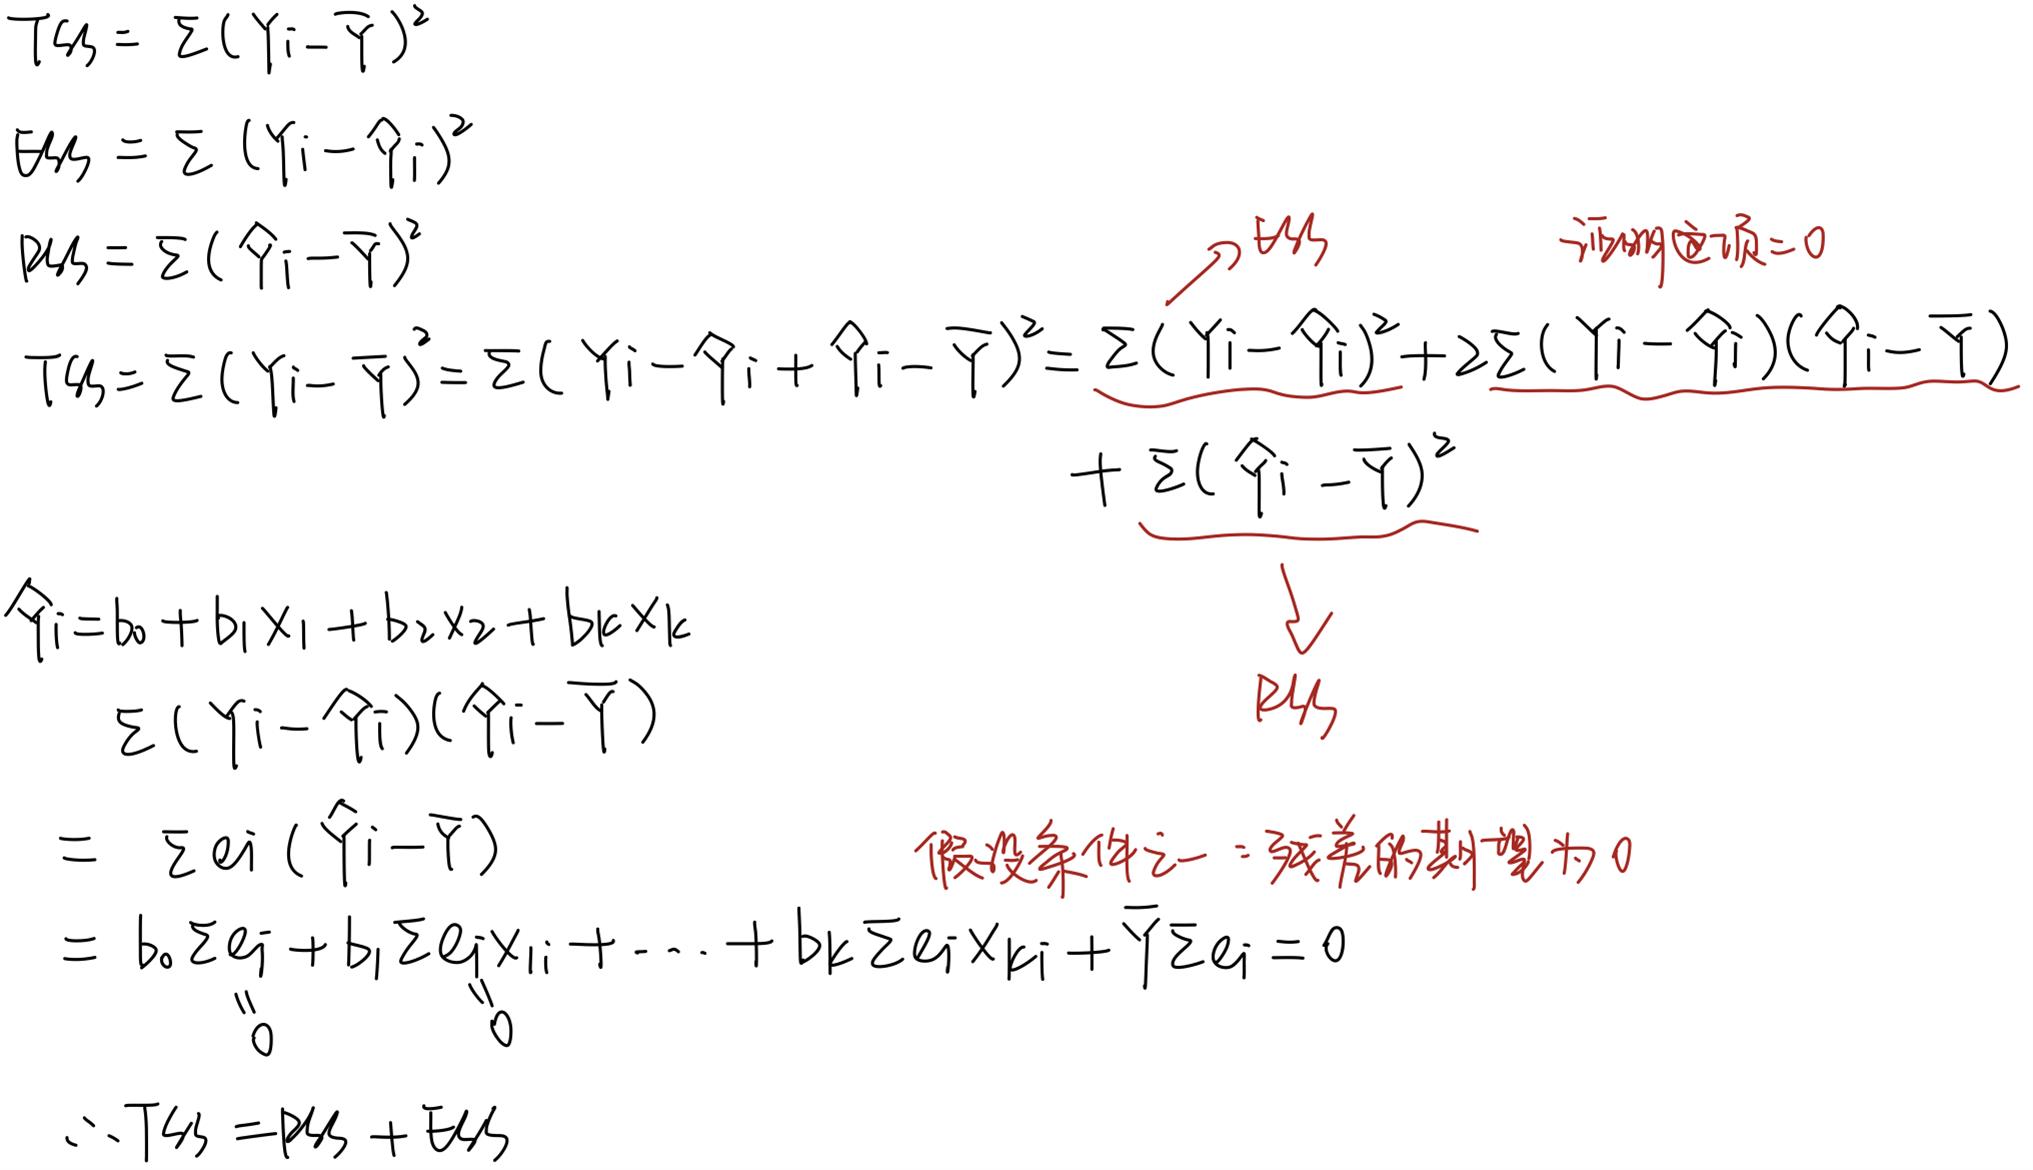 TSS = Σ(Yi - Ȳ)²
ESS = Σ(Yi - Ŷi)²
RSS = Σ(Ŷi - Ȳ)²
ESS
证明这项=0
TSS = Σ(Yi - Ȳ)² = Σ(Yi - Ŷi + Ŷi - Ȳ)² = Σ(Yi - Ŷi)² + 2Σ(Yi - Ŷi)(Ŷi - Ȳ)
+ Σ(Ŷi - Ȳ)²
RSS
Ŷi = b₀ + b₁x₁ + b₂x₂ + bₖxₖ
Σ(Yi - Ŷi)(Ŷi - Ȳ)
= Σei(Ŷi - Ȳ)
假设条件之一：残差的期望为0
= b₀Σei + b₁Σeix₁i + ... + bₖΣeixₖi + ȲΣei = 0
"0 "0
∴TSS = RSS + ESS